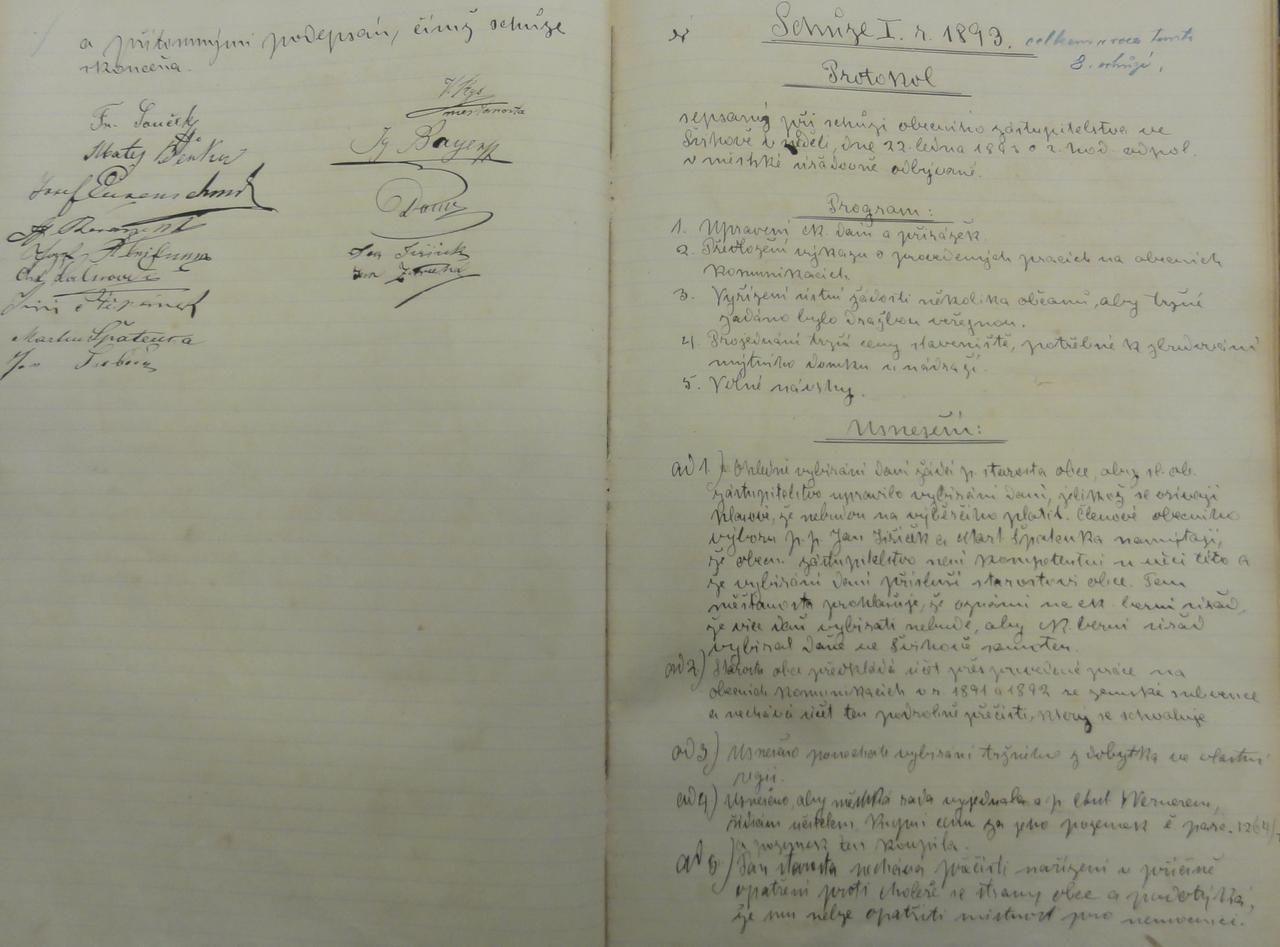 a přítomnými podepsán, čímž schůze
skončena.
Fr. Souček
Matěj
Josef
Jan
Martin Špatenka
měšťanosta
Bayer
Jan Jiřičk
Jan
Schůze I. r. 1893. celkem v roce tomto
8. schůzí.
Protokol
sepsaný při schůzi obecního zástupitelstva ve
dne 22. ledna 1893 o 2. hod. odpol.
v městské úřadovně odbývané.
Program:
1. Upravení ck. daní a přirážek.
2. Předložení výkazu o provedených pracích na obecních
komunikacích.
3. Vyřízení ústní žádosti několika občanů, aby tržné
zadáno bylo dražbou veřejnou.
4. Projednání tržní ceny staveniště, potřebné k zbudování
mýtního domku u nádraží.
5. Volné návrhy.
Usnešení:
ad 1.) Ohledně vybírání daní žádá p. starosta obce, aby sl. ob.
zástupitelstvo upravilo vybírání daní, jelikož se ozívají
hlasové, že nebudou na výběrčího platit. Členové obecního
výboru p. p. Jan Jiřičk a Mart Špatenka namítají,
že obecn. zástupitelstvo není kompetentní u věci této a
že vybírání daní přísluší starostovi obce. Pan
měšťanosta prohlašuje, že oznámí na ck. berní úřad,
že více daní vybírati nebude, aby ck. berní úřad
vybíral daně ve samoten.
ad 2) Starosta obce předkládá účet přes provedené práce na
obecních komunikacích v r. 1891 a 1892 ze zemské subvence
a nechává účet ten podrobně přečísti, který se schvaluje
ad 3) Usneseno ponechati vybírání tržného z dobytka ve vlastní
regii.
ad 4) Usneseno, aby městská rada vyjednala s p. Wernerem,
řídícím učitelem kupní cenu za jeho pozemek č. parc. 1264/
a pozemek ten koupila.
ad 5) Pan starosta nechává přečísti nařízení v příčině
opatření proti choleře se strany obce a podotýká,
že mu nelze opatřiti místnost pro nemocnici.